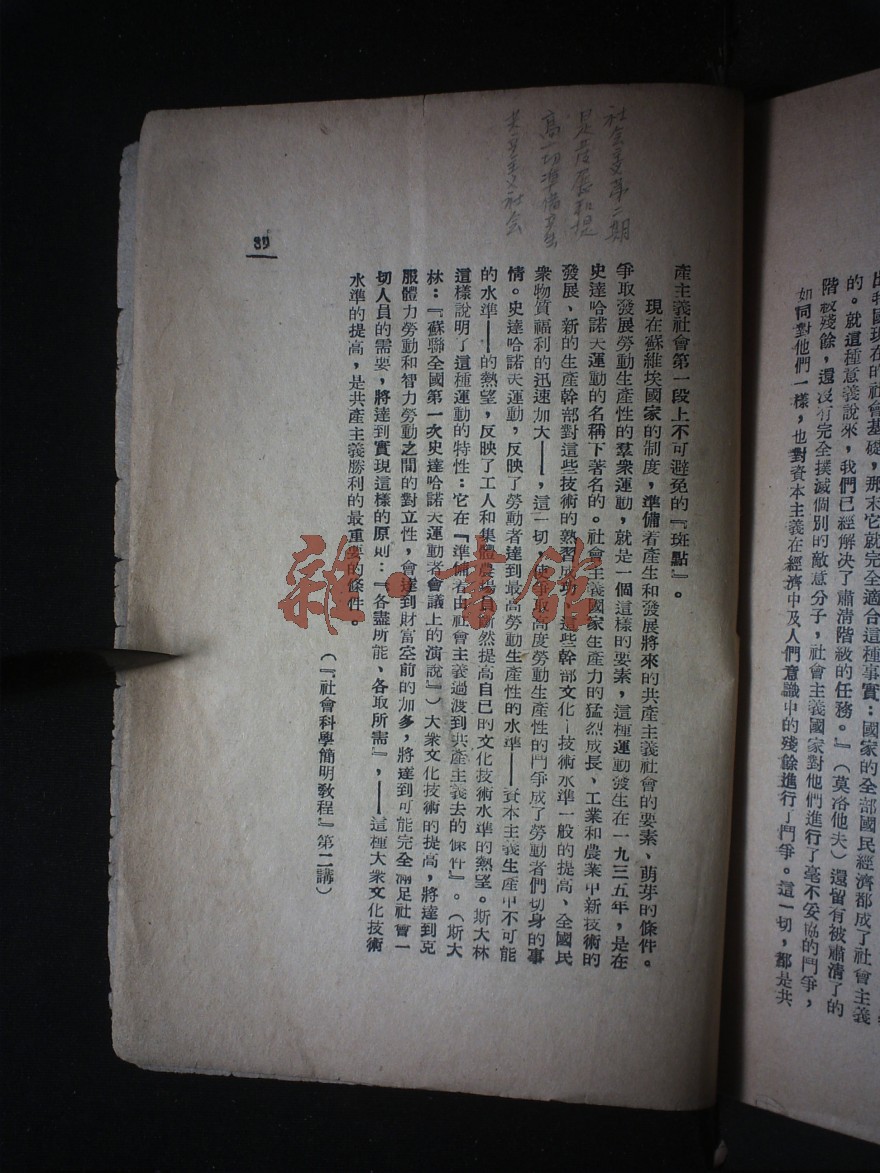 出我國現在的社會基礎，那末它就完全適合這種事實：國家的全部國民經濟都成了社會主義
的。就這種意義說來，我們已經解決了肅清階級的任務。』（莫洛他夫）還留有被肅清了的
階級殘餘，還沒有完全撲滅個別的敵意分子，社會主義國家對他們進行了毫不妥協的鬥爭，
如同對他們一樣，也對資本主義在經濟中及人們意識中的殘餘進行了鬥爭。這一切，都是共
社会主义第二期
是发展和提
高一切準備
共产主义社会
產主義社會第一段上不可避免的『斑點』。
現在蘇維埃國家的制度，準備着產生和發展將來的共產主義社會的要素、萌芽的條件。
爭取發展勞動生產性的羣衆運動，就是一個這樣的要素，這種運動發生在一九三五年，是在
史達哈諾夫運動的名稱下著名的。社會主義國家生產力的猛烈成長、工業和農業中新技術的
發展、新的生產幹部對這些技術的熟習成功、這些幹部文化—技術水準一般的提高、全國民
衆物質福利的迅速加大——，這一切，使爭取高度勞動生產性的鬥爭成了勞動者們切身的事
情。史達哈諾夫運動，反映了勞動者達到最高勞動生產性的水準——資本主義生產中不可能
的水準——的熱望，反映了工人和集體農場員奮然提高自已的文化技術水準的熱望。斯大林
這樣說明了這種運動的特性：它在『準備着由社會主義過渡到共產主義去的條件』。（斯大
林：『蘇聯全國第一次史達哈諾夫運動者會議上的演說』）大衆文化技術的提高，將達到克
服體力勞動和智力勞動之間的對立性，會達到財富空前的加多，將達到可能完全滿足社會一
切人員的需要，將達到實現這樣的原則：『各盡所能、各取所需』，——這種大衆文化技術
水準的提高，是共產主義勝利的最重要的條件。
（『社會科學簡明敎程』第二講）
39
雜·書館